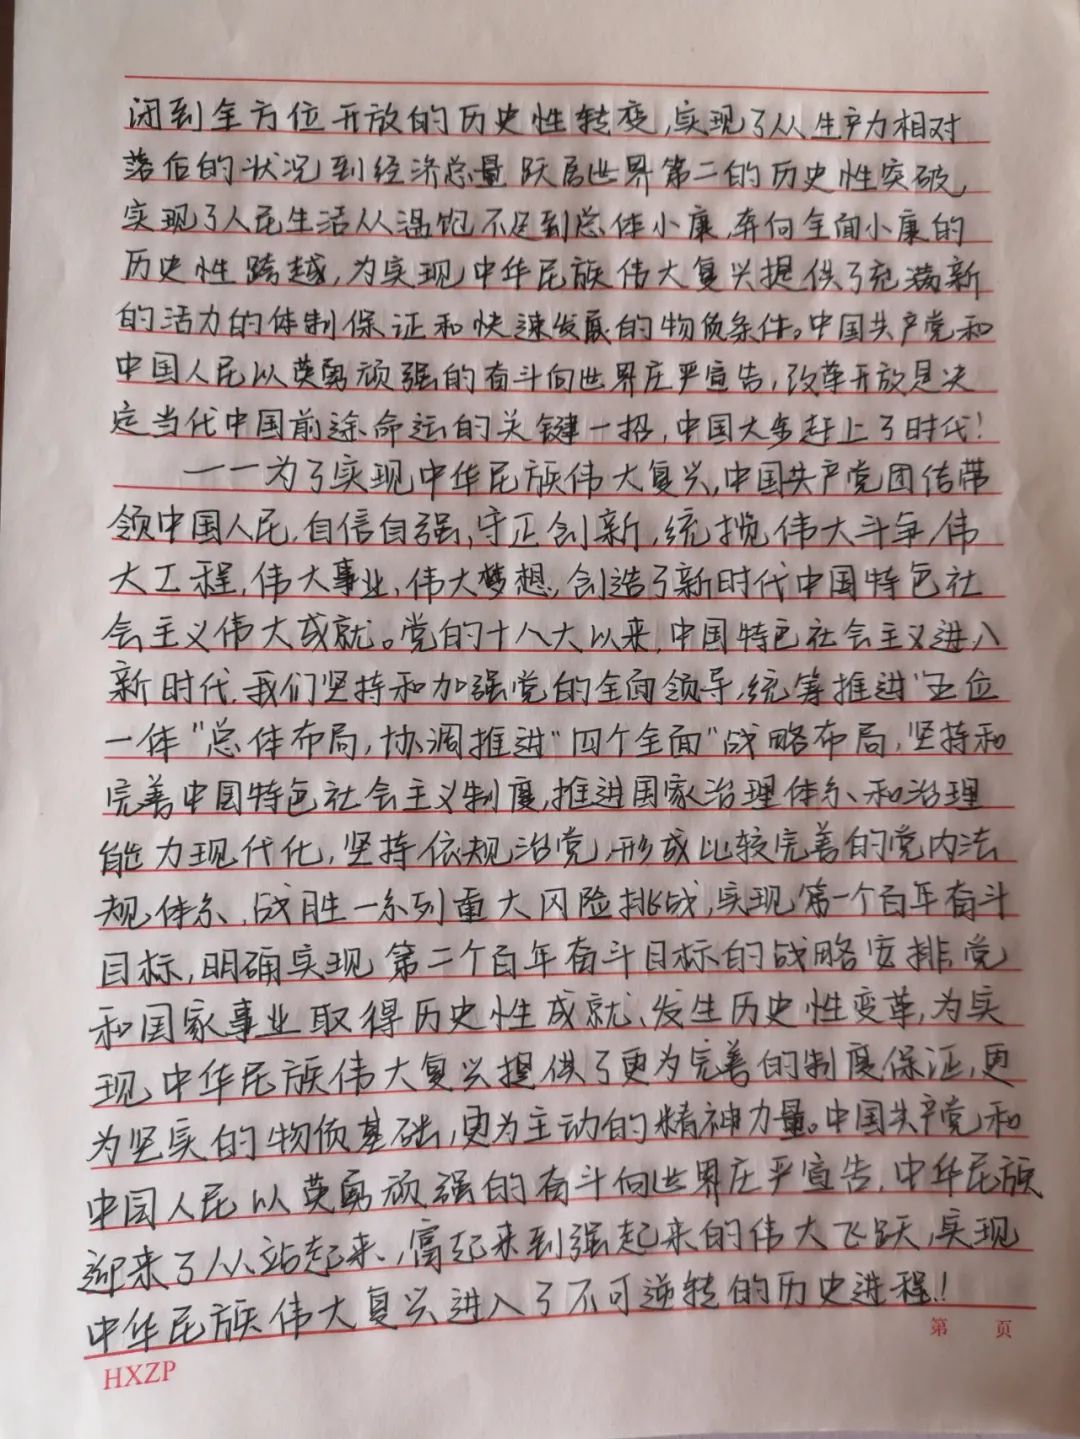 闭到全方位开放的历史性转变,实现了从生产力相对
落后的状况到经济总量跃居世界第二的历史性突破,
实现了人民生活从温饱不足到总体小康,奔向全面小康的
历史性跨越,为实现中华民族伟大复兴提供了充满新
的活力的体制保证和快速发展的物质条件。中国共产党和
中国人民以英勇顽强的奋斗向世界庄严宣告,改革开放是决
定当代中国前途命运的关键一招,中国大步赶上了时代!
——为了实现中华民族伟大复兴,中国共产党团结带
领中国人民,自信自强,守正创新,统揽伟大斗争,伟
大工程,伟大事业、伟大梦想,创造了新时代中国特色社
会主义伟大成就。党的十八大以来,中国特色社会主义进入
新时代,我们坚持和加强党的全面领导,统筹推进"五位
一体"总体布局,协调推进"四个全面"战略布局,坚持和
完善中国特色社会主义制度,推进国家治理体系和治理
能力现代化,坚持依规治党,形成比较完善的党内法
规体系,战胜一系列重大风险挑战,实现第一个百年奋斗
目标,明确实现第二个百年奋斗目标的战略安排党
和国家事业取得历史性成就、发生历史性变革,为实
现中华民族伟大复兴提供了更为完善的制度保证,更
为坚实的物质基础,更为主动的精神力量。中国共产党和
中国人民以英勇顽强的奋斗向世界庄严宣告,中华民族
迎来了从站起来,富起来到强起来的伟大飞跃,实现
中华民族伟大复兴进入了不可逆转的历史进程!
第 页
HXZP